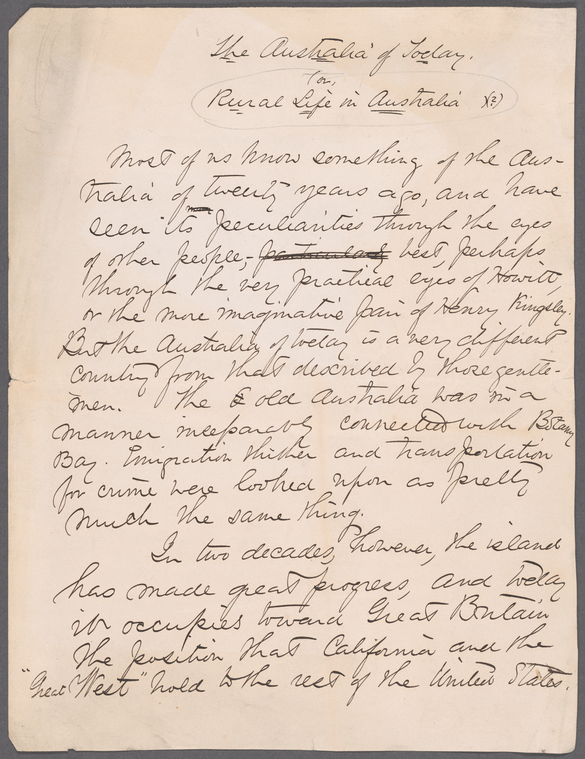 The Australia of Today.
(or,
Rural Life in Australia (?)
Most of us know something of the Aus-
tralia of twenty years ago, and have
seen its peculiarities through the eyes
of other people,- particularly best, perhaps,
through the very practical eyes of Howitt,
or the more imaginative pair of Henry Kingsley.
But the Australia of today is a very different
country from that described by those gentle-
men. The old Australia was in a
manner inseparably connected with Botany
Bay. Emigration thither and transportation
for crime were looked upon as pretty
much the same thing.
In two decades, however, the island
has made great progress, and today
it occupies toward Great Britain
the position that California and the
"Great West" hold to the rest of the United States.